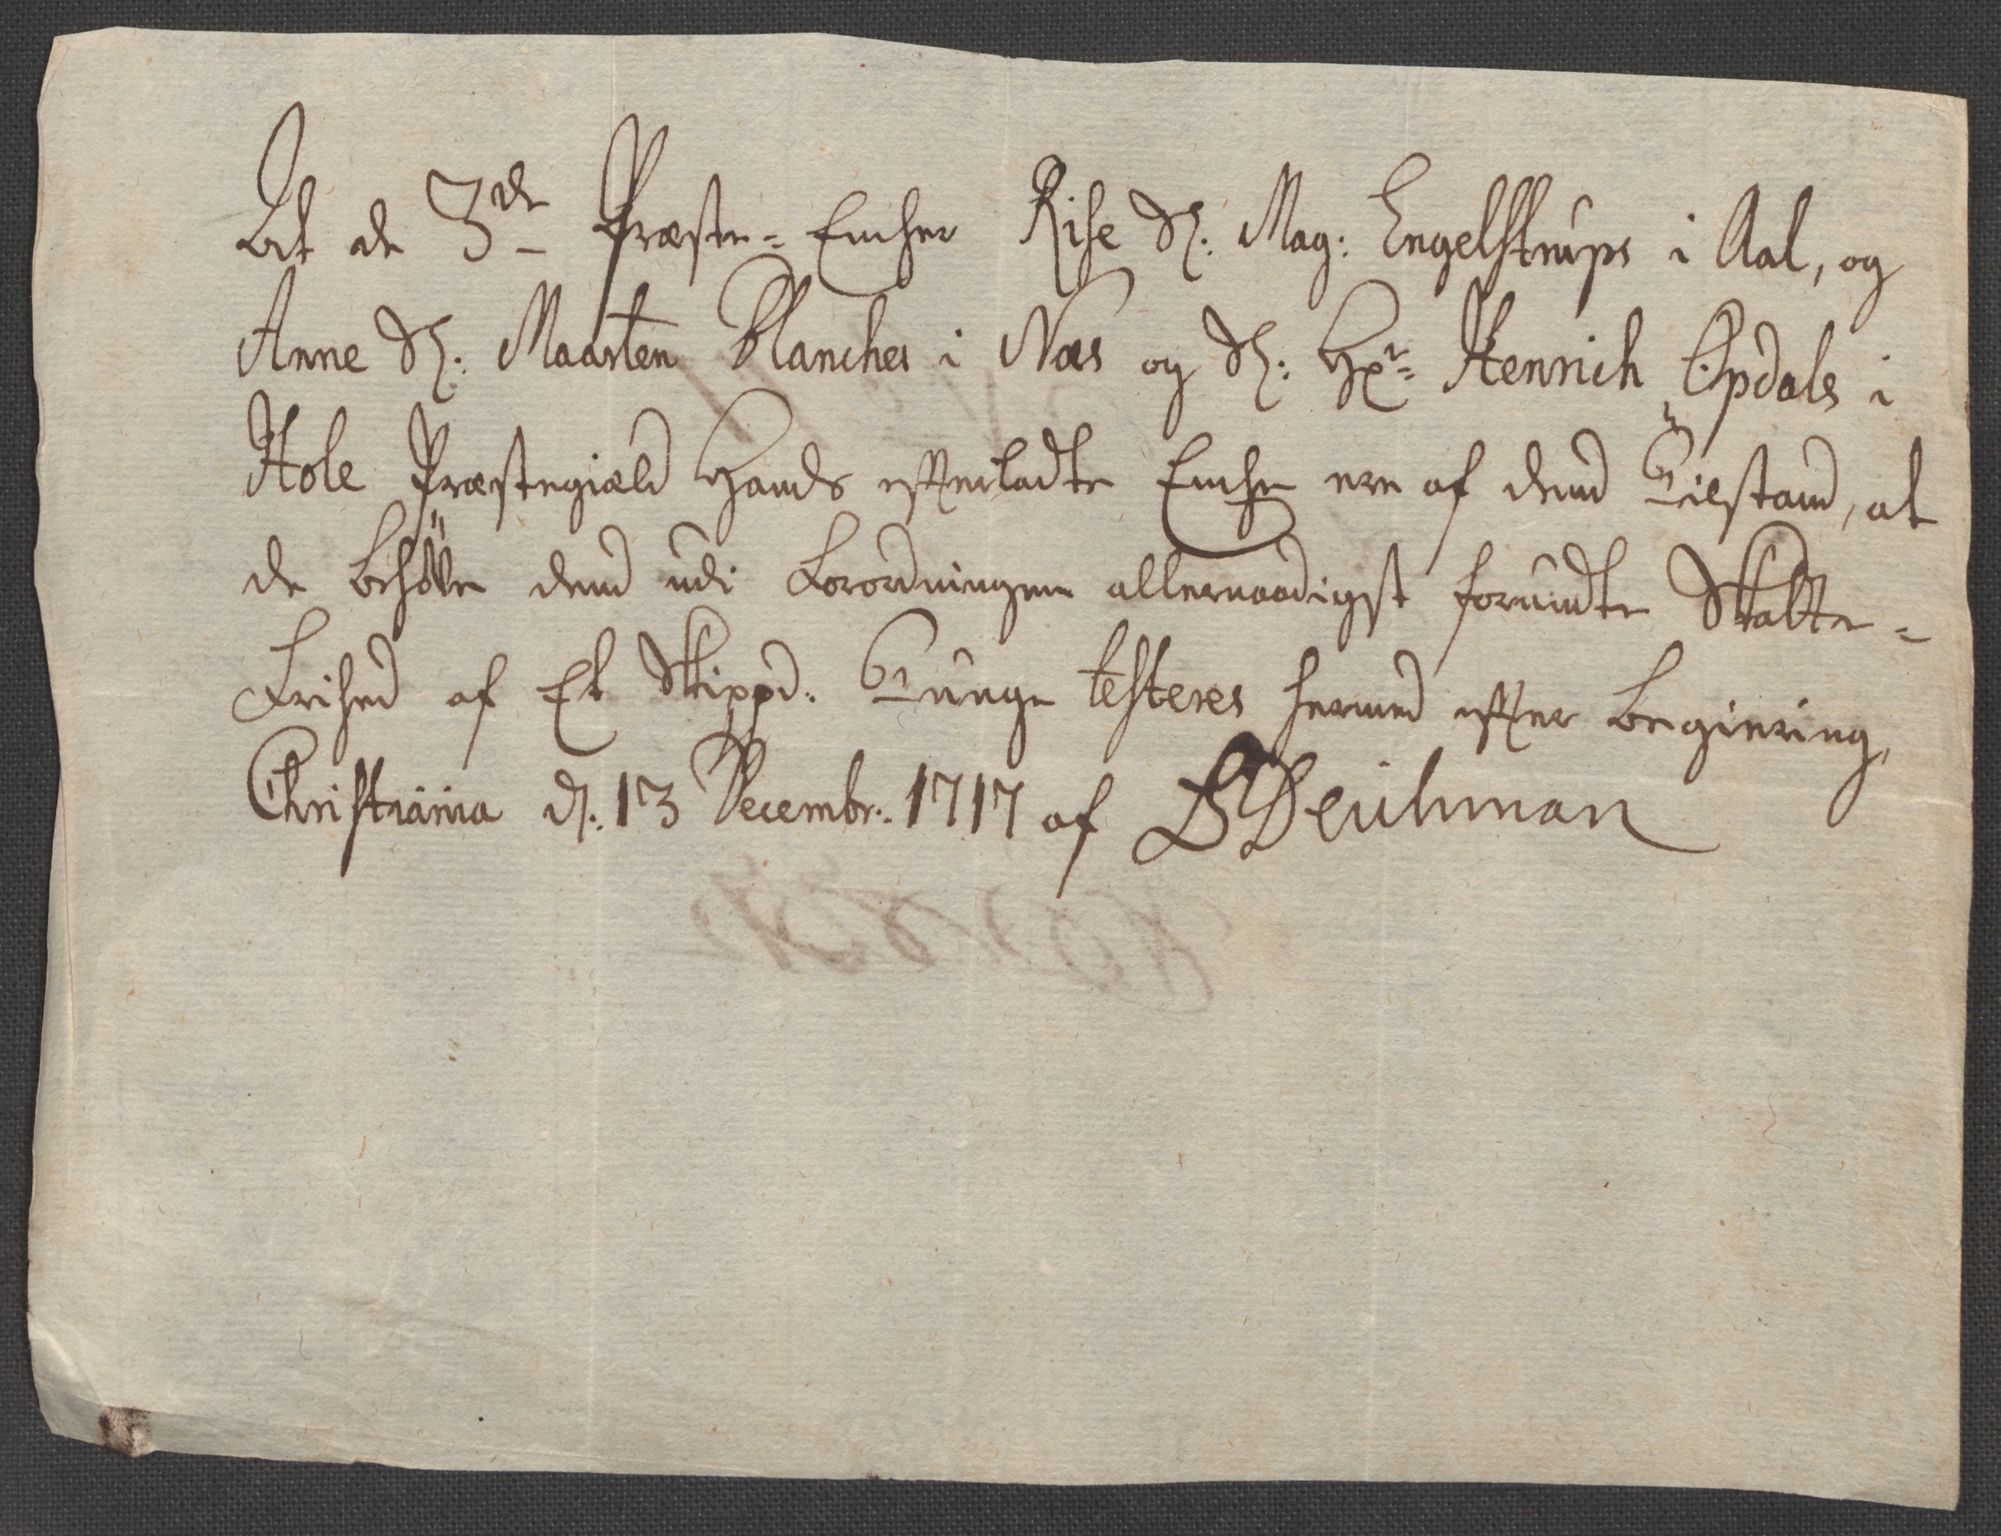 At de 3de Præste-Encker Rise Sl. Mag: Engelstrups i Aal, og
Anne Sl. Maarten Blanches i Næs og Sl. Hr. Henrich Opdals i
Hole Præstegiæld Hands efterladte Encke ere af dend Tilstand, at
de behøve dend udi Forordningen allernaadigst forundte Skatte-
Frihed af Et Skippd. Tunge testeres hermed efter begiering,
Christiania d. 13 Decembr. 1717 af BDeichman